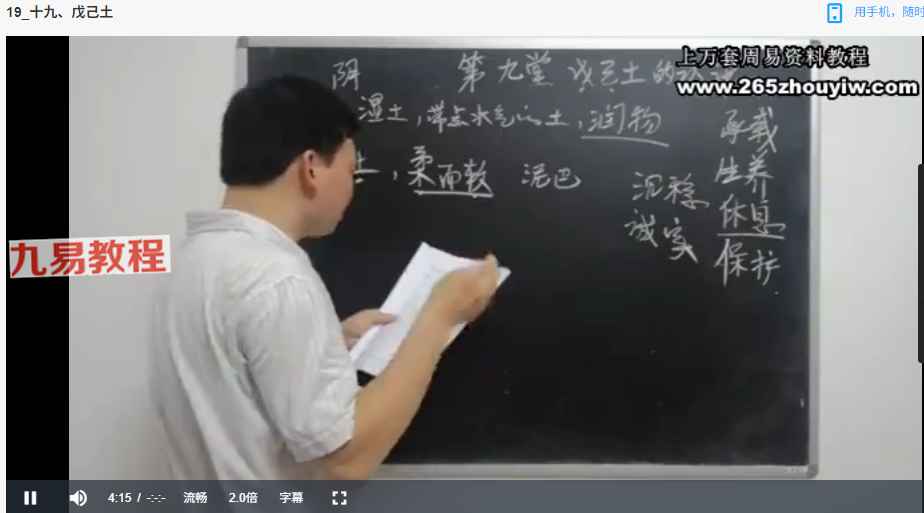 19_十九、戊己土
用手机，随时
上万套周易资料教程
www.265zhouyiw.com
阴 第九堂 戊己土的
湿土，带点水气的土，润物
土，柔而软 泥巴
承载
生养
休息
保护
沉稳
诚实
九易教程
4:15 / -:-:- 流畅 2.0倍 字幕